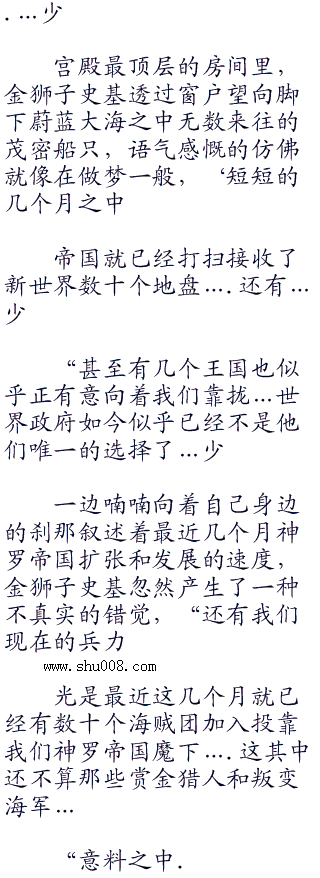 . …少
宫殿最顶层的房间里，
金狮子史基透过窗户望向脚
下蔚蓝大海之中无数来往的
茂密船只，语气感慨的仿佛
就像在做梦一般，‘短短的
几个月之中
帝国就已经打扫接收了
新世界数十个地盘….还有…
少
“甚至有几个王国也似
乎正有意向着我们靠拢…世
界政府如今似乎已经不是他
们唯一的选择了…少
一边喃喃向着自己身边
的刹那叙述着最近几个月神
罗帝国扩张和发展的速度，
金狮子史基忽然产生了一种
不真实的错觉，“还有我们
现在的兵力
www.shu008.com
光是最近这几个月就已
经有数十个海贼团加入投靠
我们神罗帝国魔下….这其中
还不算那些赏金猎人和叛变
海军…
“意料之中.